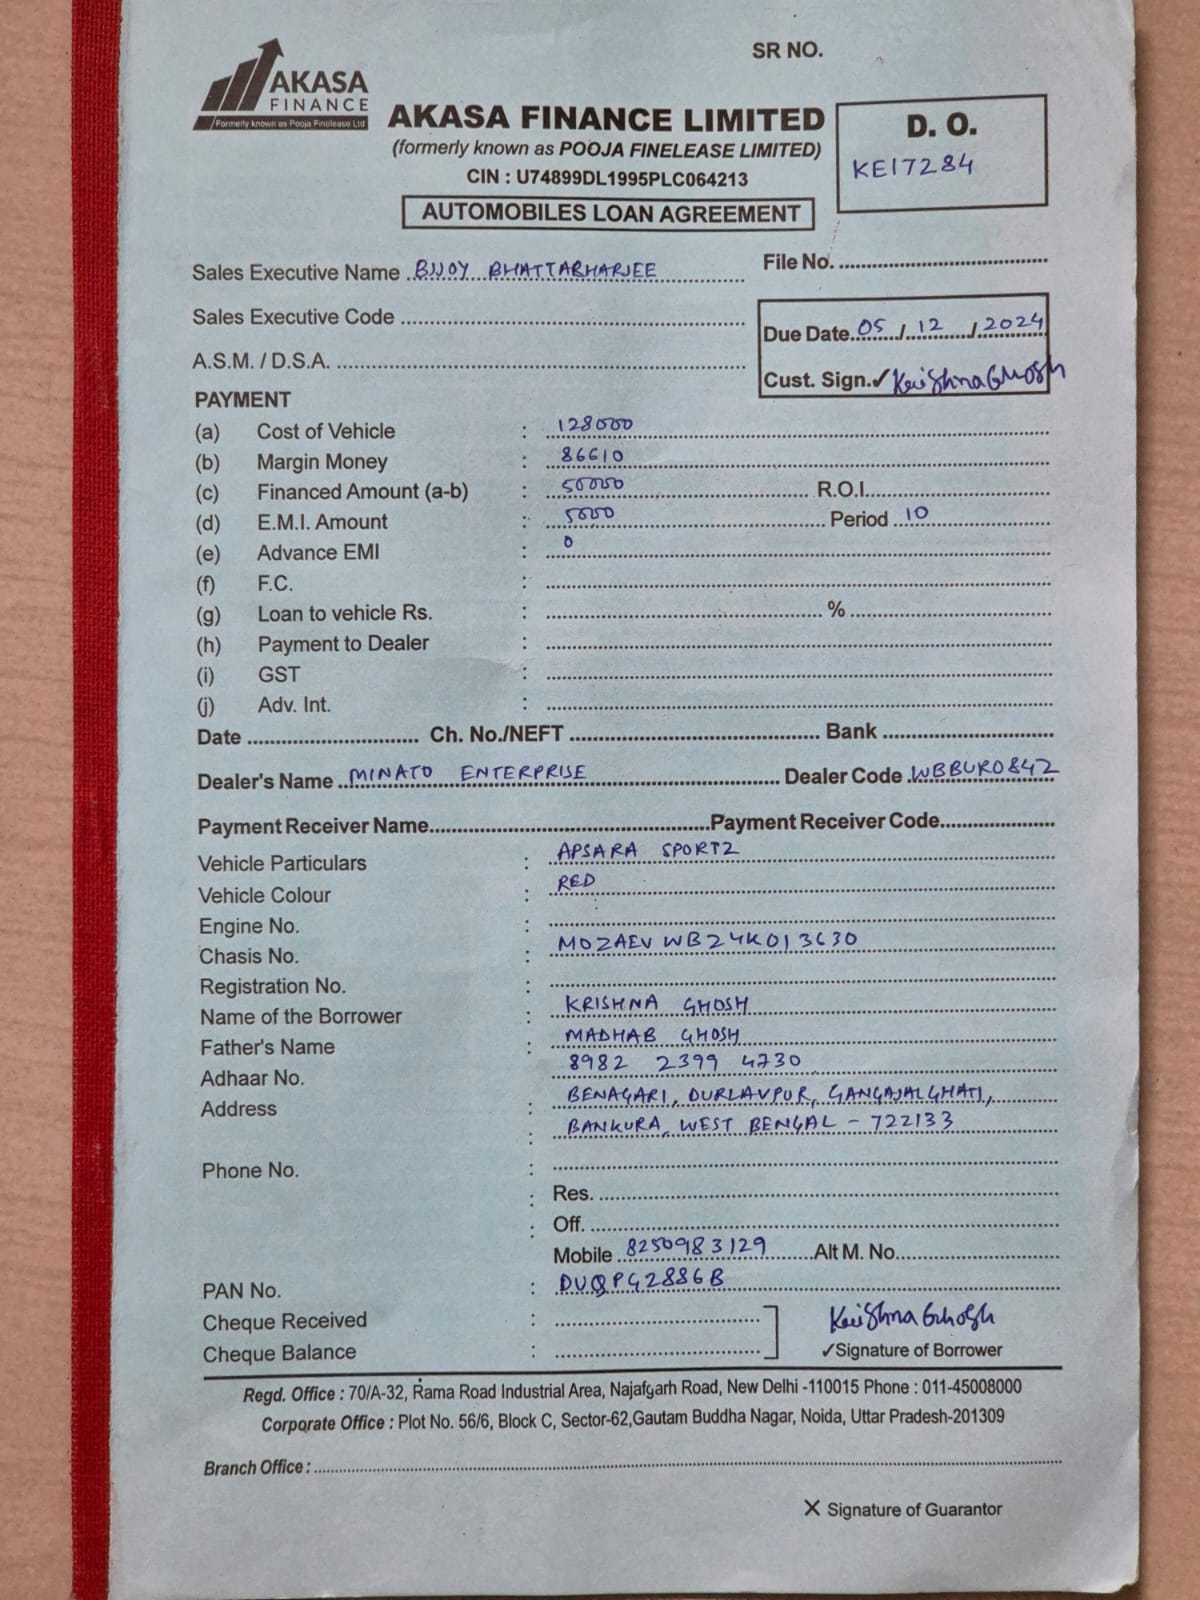 SR NO.
AKASA
FINANCE
Formerly known as Pooja Finelease Ltd
AKASA FINANCE LIMITED
(formerly known as POOJA FINELEASE LIMITED)
CIN : U74899DL1995PLC064213
AUTOMOBILES LOAN AGREEMENT
D. O.
KE17284
Sales Executive Name BIJOY BHATTABHARJEE
File No.
Sales Executive Code
Due Date 05 / 12 / 2024
A.S.M. / D.S.A.
Cust. Sign.✓ Krishna Ghosh
PAYMENT
(a) Cost of Vehicle : 128000
(b) Margin Money : 86610
(c) Financed Amount (a-b) : 50000 R.O.I.
(d) E.M.I. Amount : 5000 Period 10
(e) Advance EMI : 0
(f) F.C. :
(g) Loan to vehicle Rs. : %
(h) Payment to Dealer :
(i) GST :
(j) Adv. Int. :
Date Ch. No./NEFT Bank
Dealer's Name MINATO ENTERPRISE Dealer Code WBBUR0842
Payment Receiver Name Payment Receiver Code
Vehicle Particulars : APSARA SPORTZ
Vehicle Colour : RED
Engine No. :
Chasis No. : MOZAEVWB24K013630
Registration No. :
Name of the Borrower : KRISHNA GHOSH
Father's Name : MADHAB GHOSH
Adhaar No. 8982 2399 4730
Address : BENAGARI, DURLAVPUR, GANGAJALGHATI,
: BANKURA, WEST BENGAL - 722133
Phone No. :
: Res.
: Off.
Mobile 8250983129 Alt M. No.
PAN No. : DUQPG2886B
Cheque Received :
Krishna Ghosh
Cheque Balance :
✓Signature of Borrower
Regd. Office : 70/A-32, Rama Road Industrial Area, Najafgarh Road, New Delhi -110015 Phone : 011-45008000
Corporate Office : Plot No. 56/6, Block C, Sector-62,Gautam Buddha Nagar, Noida, Uttar Pradesh-201309
Branch Office :
X Signature of Guarantor